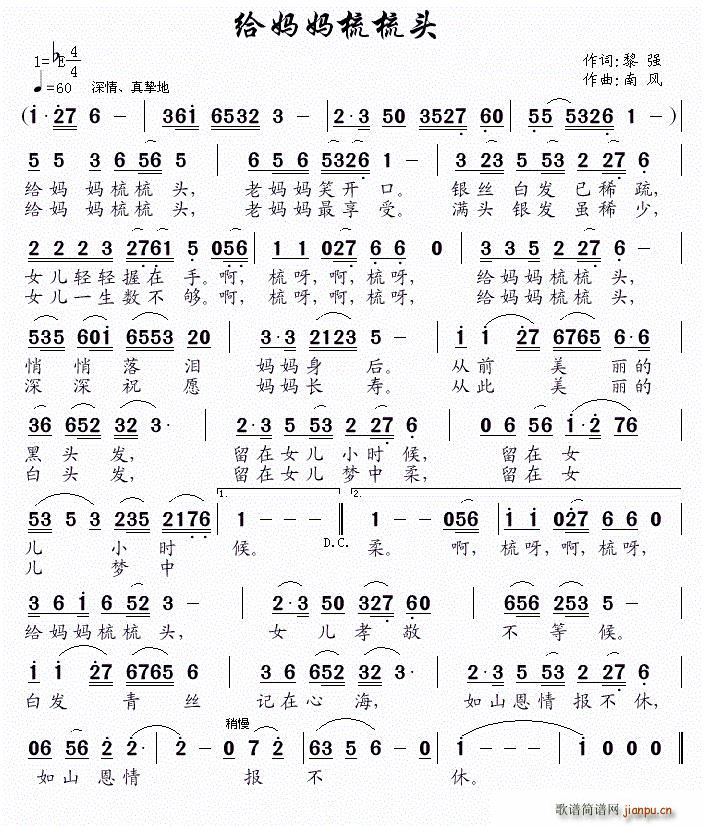 给妈妈梳梳头
1=♭E 4/4
作词:黎 强
♩=60 深情、真挚地
作曲:南 风
(i·27 6 - | 361 6532 3 - | 2·3 50 3527 60 | 55 5326 1 - )
5 5 3 6 56 5 | 6 5 6 5326 1 - | 3 23 5 53 2 27 6
给妈 妈梳梳 头, 老妈妈笑开 口。 银丝 白发 已稀 疏,
给妈 妈梳梳 头, 老妈妈最享 受。 满头 银发 虽稀 少,
2 2 2 3 2761 5 056 | 1 1 027 6 6 0 | 3 3 5 2 276 6
女儿轻轻握在 手。啊, 梳呀,啊,梳呀, 给妈妈梳梳 头,
女儿一生数不 够。啊, 梳呀,啊,梳呀, 给妈妈梳梳 头,
535 601 6553 20 | 3·3 2123 5 - | i i 27 6765 6·6
悄 悄 落 泪 妈妈身 后。 从前 美 丽的
深 深 祝 愿 妈妈长 寿。 从此 美 丽的
36 652 32 3· | 2·3 5 53 2 27 6 | 0 6 56 i·2 76
黑 头 发, 留在女儿 小时 候, 留在 女
白 头 发, 留在女儿 梦中 柔, 留在 女
53 5 3 235 2176 | 1. 1 - - - D.C. 2. 1 - - 056 | i i 027 6 6 0
儿 小 时 候。 柔。 啊, 梳呀,啊,梳呀,
儿 梦 中
3 6 i 6 52 3 - | 2·3 50 327 60 | 656 253 5 -
给妈妈梳梳 头, 女 儿 孝 敬 不 等 候。
i i 27 6765 6 | 3 6 652 332 3· | 2·3 5 53 2 27 6
白发 青 丝 记在心 海, 如山恩情 报不 休,
稍慢
06 56 2 2· | 2 - 0 7 2 | 63 5 6 - | 1 - - - | 1 - - -
如山 恩情 报 不 休。
歌谱简谱网
jianpu.cn